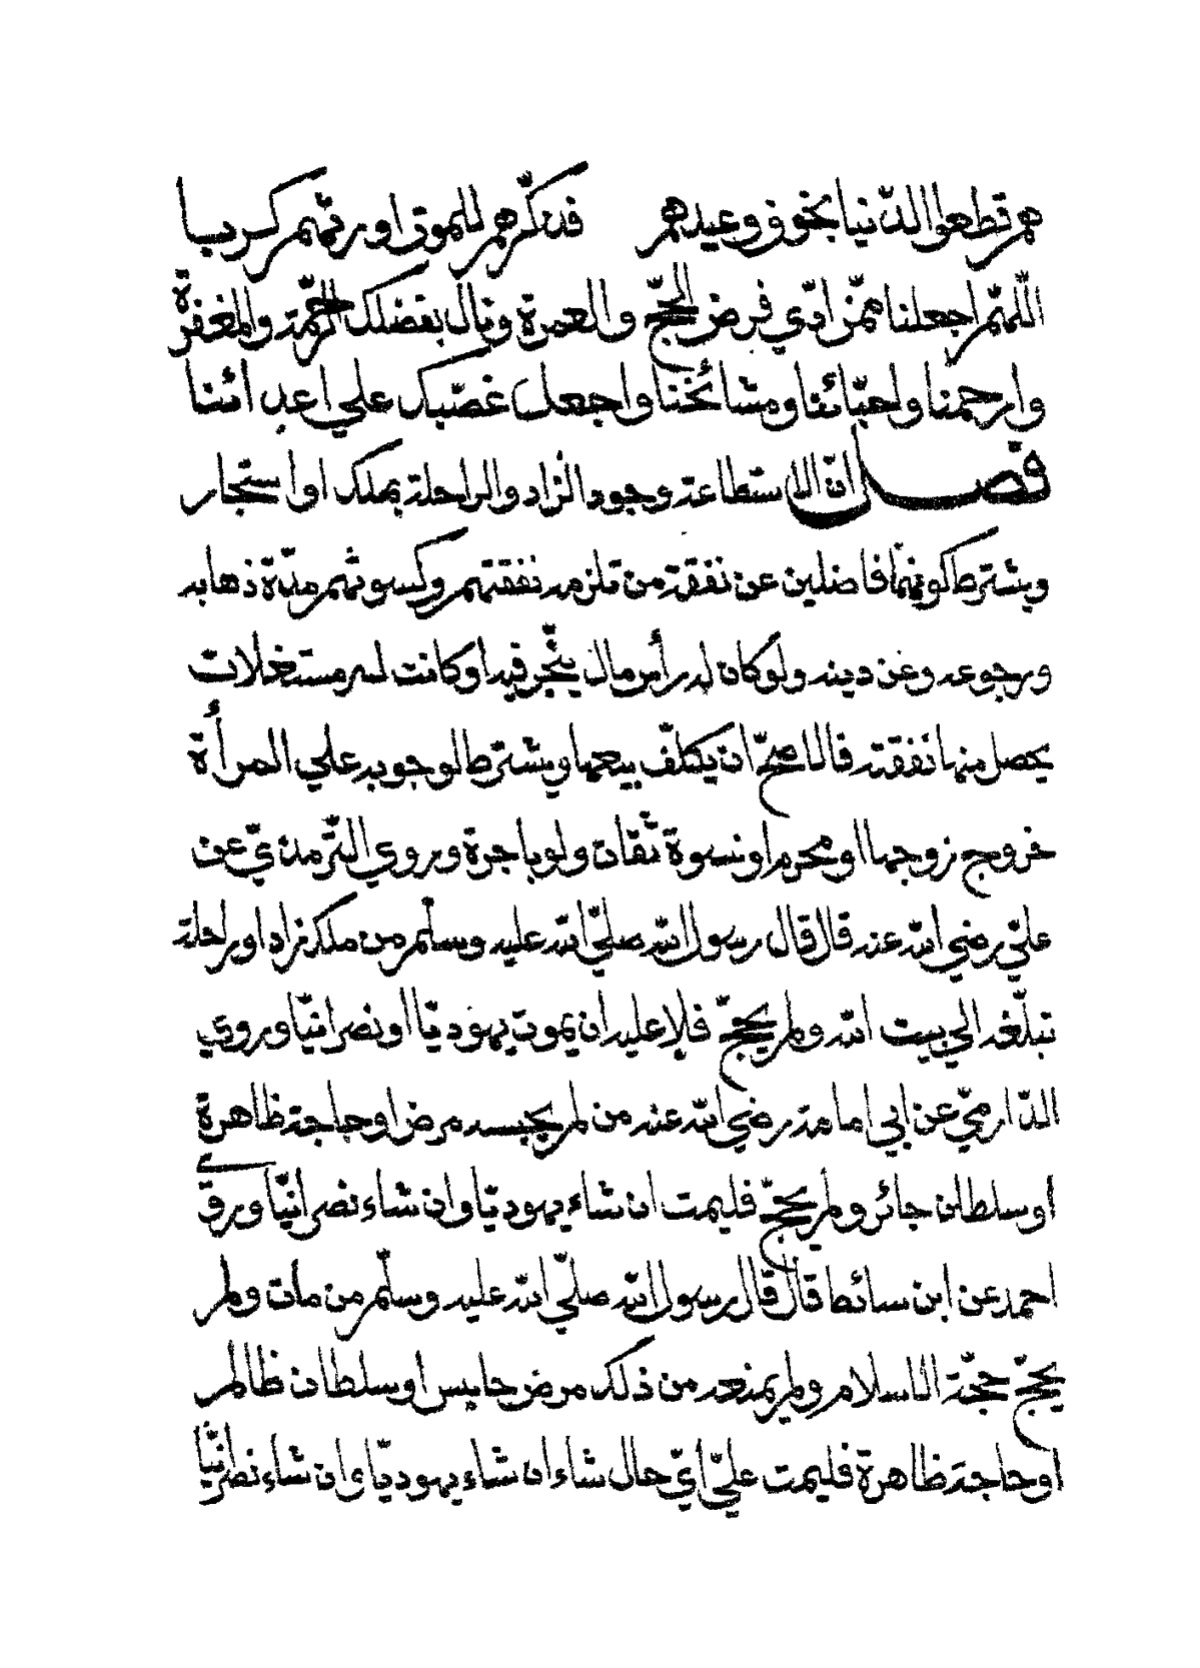 هم قطعوا الدّنيا بخوف وعيدهم   فذكّرهم للموتى اورثهم كربا
اللّهمّ اجعلنا ممّن ادّي فرض الحجّ والعمرة ونال بفضلك الرّحمة والمغفرة
وارحمنا واحبّائنا ومشائخنا واجعل غضبك علي اعدائنا
فصل انّ الاستطاعة وجود الزاد والراحلة بملك او استجار
ويشترط كونهما فاضلين عن نفقة من تلزمه نفقتهم وكسوتهم مدّة ذهابه
ورجوعه وعن دينه ولو كان له رأس مال يتّجر فيه او كانت له مستغلات
يحصل منها نفقته فالاصحّ ان يكلّف بيعها ويشترط لوجوبه علي المرأة
خروج زوجها او محرم او نسوة ثقات ولو باجرة وروي التّرمذيّ عن
عليّ رضي الله عنه قال قال رسول الله صلّي الله عليه وسلّم من ملك زاد او راحلة
تبلّغه الي بيت الله ولم يحجّ فلا عليه ان يموت يهوديّا او نصرانيّا وروي
الدّارميّ عن ابي امامة رضي الله عنه من لم يحبسه مرض او حاجة ظاهرة
او سلطان جائر ولم يحجّ فليمت ان شاء يهوديّا وان شاء نصرانيّا وروي
احمد عن ابن سائط قال قال رسول الله صلّي الله عليه وسلّم من مات ولم
يحجّ حجّة الاسلام ولم يمنعه من ذلك مرض حابس او سلطان ظالم
او حاجة ظاهرة فليمت عليّ ايّ حال شاء ان شاء يهوديّا وان شاء نصرانيّا